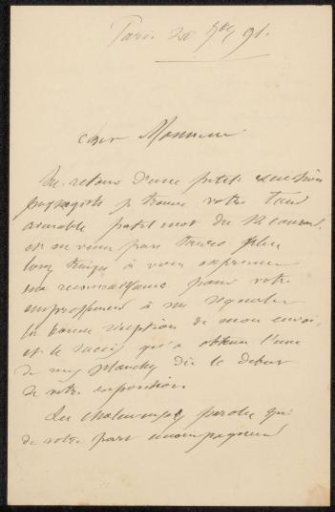 Paris 20 91.
Cher Monsieur
De retour d'une petite excursion
je trouve votre tant
aimable petit mot du 12 courant
et ne veux pas tarder plus
longtemps à vous exprimer
ma reconnaissance pour votre
empressement à me signaler
la bonne réception de mon envoi,
et le succès qu'a obtenu l'une
de mes planches dès le début
de votre exposition.
Les chaleureuses paroles qui
de votre part accompagnent